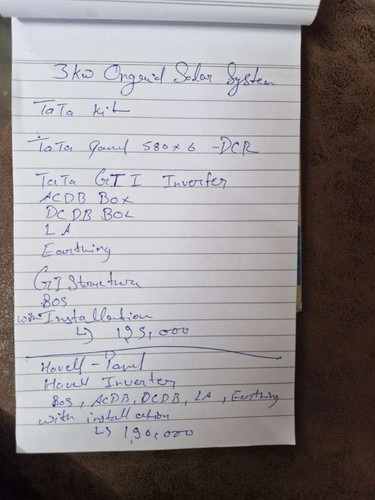 3kw Ongrid Solar System
TaTa Kit
TaTa Panel 580x6 -DCR
TaTa GTI Inverter
ACDB Box
DCDB Box
LA
Earthing
GI Structure
BOS
with Installation
↳ 195,000
Havell - Panel
Havell Inverter
Bos, ACDB, DCDB, LA, Earthing
with installation
↳ 190,000